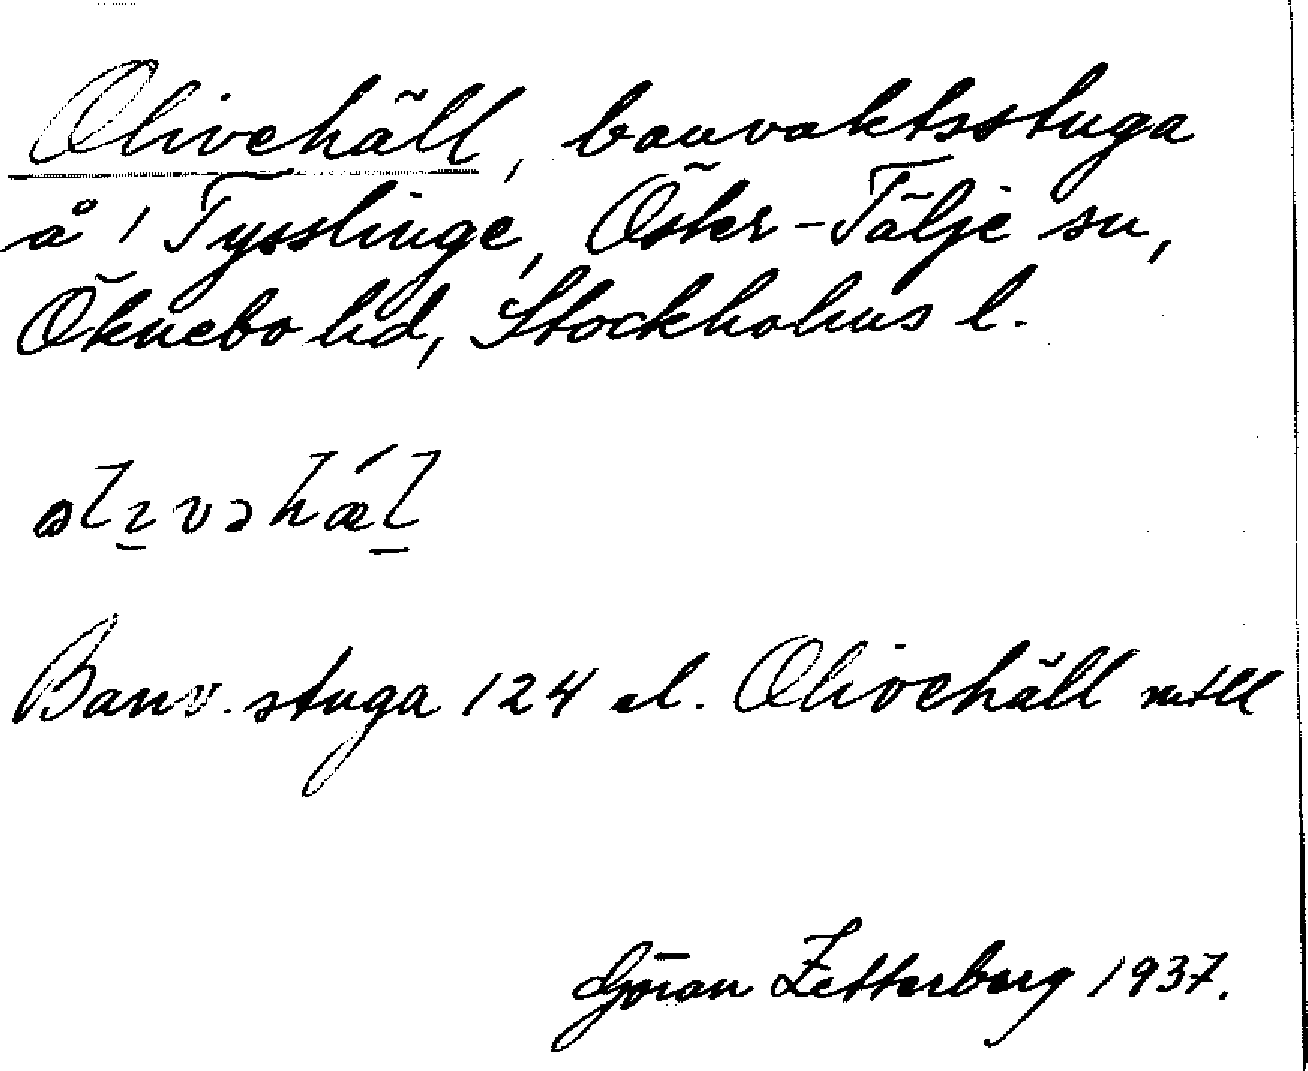 Olivehäll, banvaktsstuga
å 1 Tysslinge, Öster-Tälje sn,
Öknebo hd, Stockholms l.
Banv. stuga 124 el. Olivehäll mtll
Göran Zetterberg 1937.